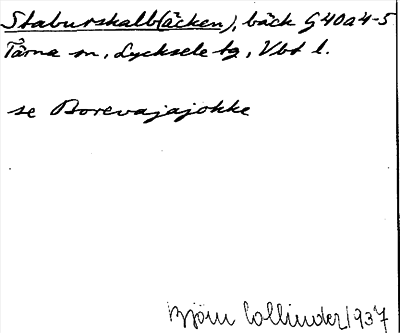 Staburskalb(äcken), bäck G40a4-5
Tärna sn, Lycksele tg, Vbt l.
se Borevajajokke
Björn Collinder 1937